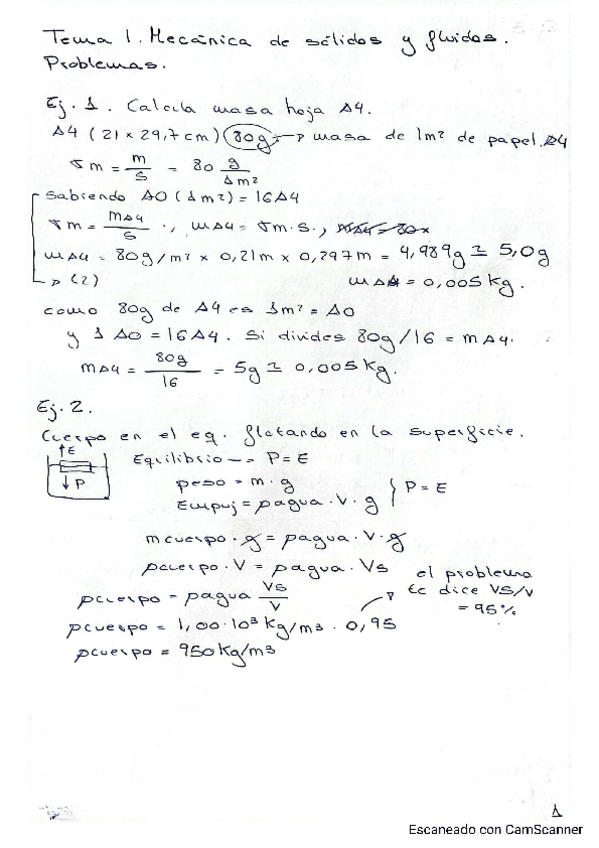 Tema 1. Mecánica de sólidos y fluidos.
Problemas.
Ej. 1. Calcula masa hoja A4.
A4 (21 x 29,7 cm) 80g → masa de 1m² de papel A4
σm = m/S = 80 g/1m²
Sabiendo A0 (1m²) = 16A4
σm = mA4/S ., mA4 = σm·S.,
mA4 = 80g/m² x 0,21m x 0,297m = 4,989g ≃ 5,0g
→ (2) mA4 = 0,005kg.
como 80g de A4 es 1m² = A0
y 1 A0 = 16A4. Si divides 80g/16 = mA4.
mA4 = 80g/16 = 5g ≃ 0,005kg.
Ej. 2.
Cuerpo en el eq. flotando en la superficie.
↑E
↓P
Equilibrio → P=E
peso = m·g
Empuj = ρagua·V·g } P=E
mcuerpo·g = ρagua·V·g
ρcuerpo·V = ρagua·Vs
ρcuerpo = ρagua Vs/V
el problema
te dice Vs/V
= 95%
ρcuerpo = 1,00·10³ Kg/m³ · 0,95
ρcuerpo = 950 Kg/m³
1
Escaneado con CamScanner